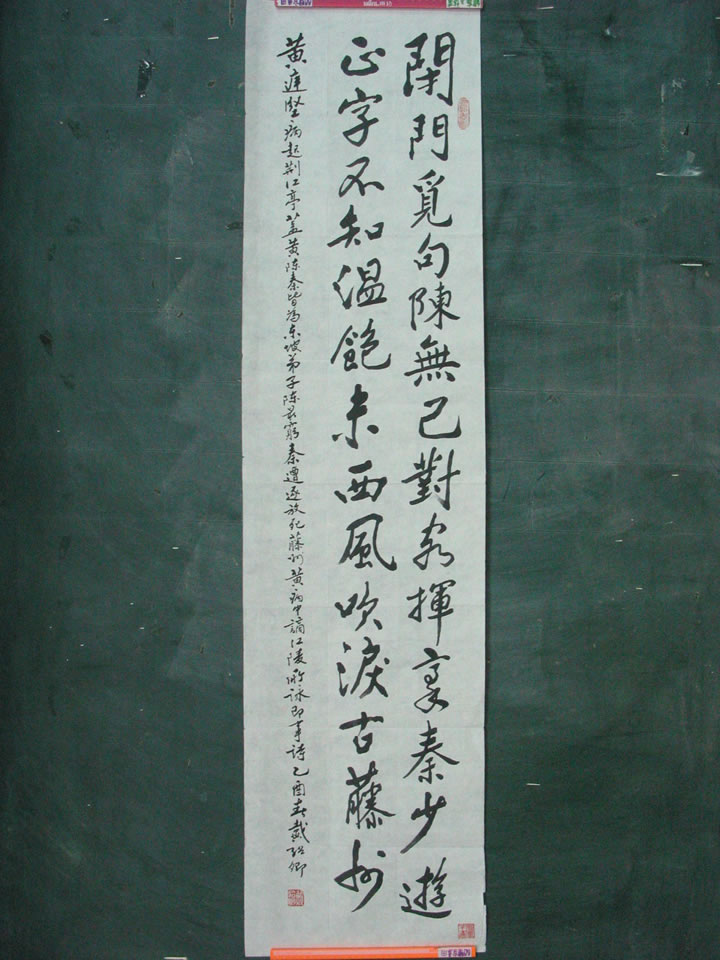 閉門覓句陳無己對客揮毫秦少遊
正字不知温飽未西風吹淚古藤州
黄庭堅病起荆江亭盖黄陈秦皆为东坡弟子陈最窮秦遭逐放死藤州黄病中謫江陵所詠即事詩乙酉春戴紹卿